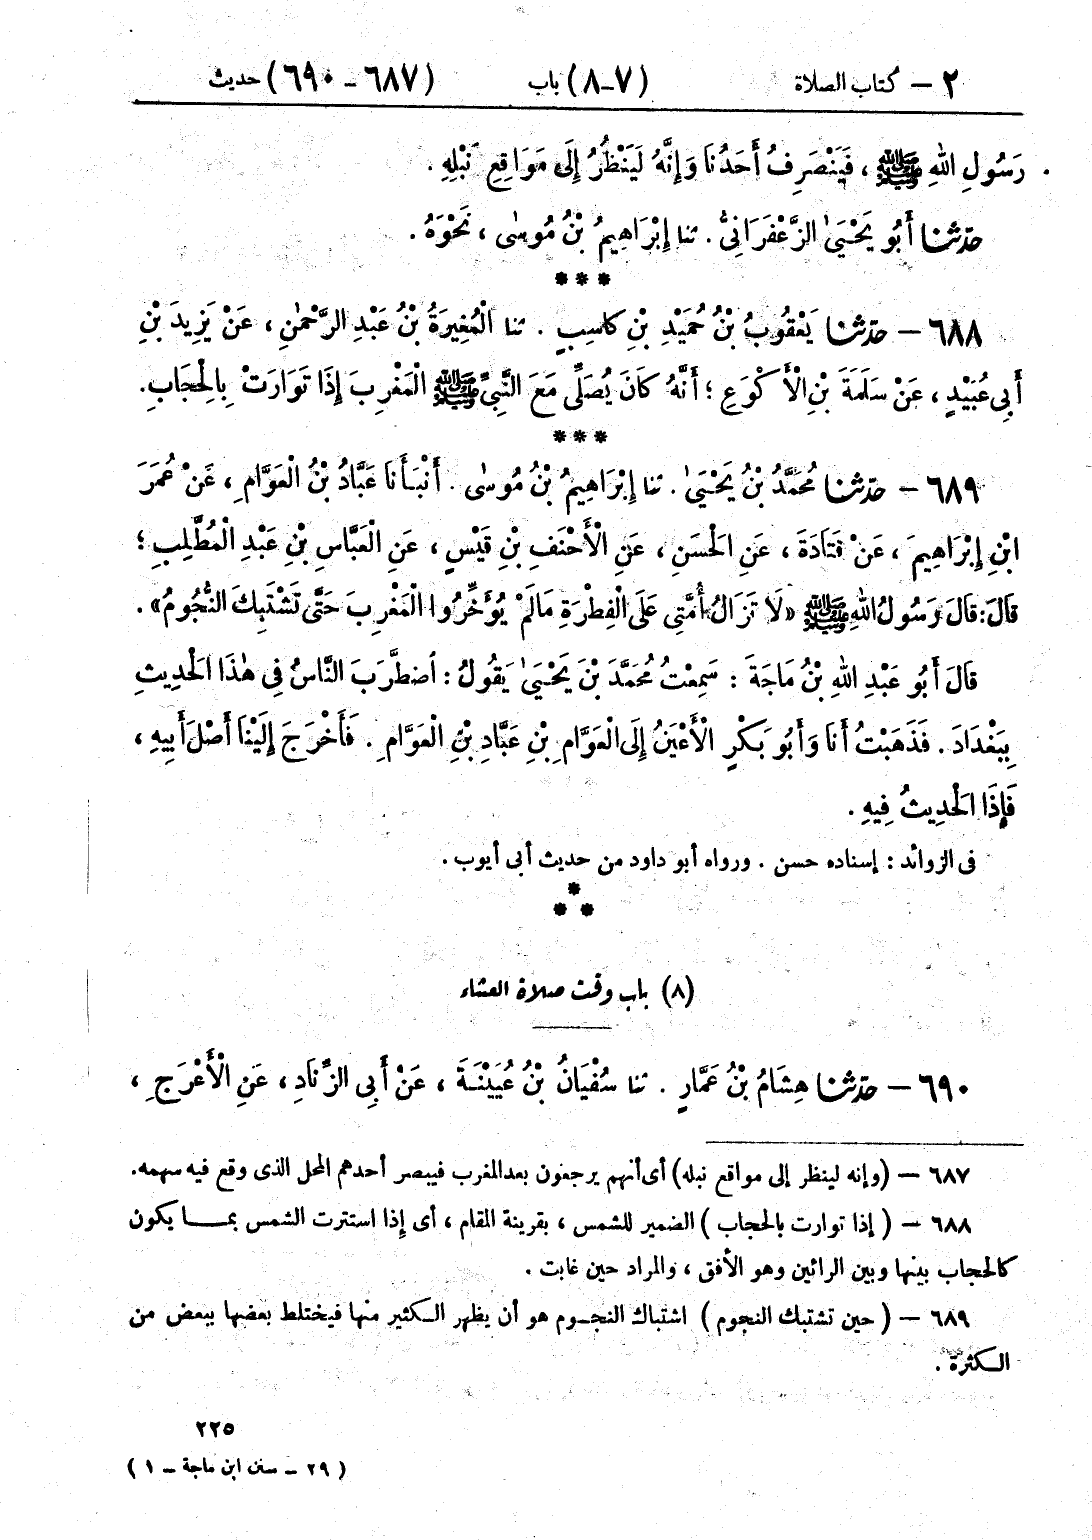 ٢ – كتاب الصلاة (٧-٨) باب (٦٨٧ – ٦٩٠) حديث
رَسُولِ اللهِ ﷺ ، فَيَنْصَرِفُ أَحَدُنَا وَإِنَّهُ لَيَنْظُرُ إِلَى مَوَاقِعِ نَبْلِهِ .
حدّثنا أَبُو يَحْيَىٰ الزَّعْفَرَانِىُّ . ثنا إِبْرَاهِيمُ بْنُ مُوسَىٰ ، نَحْوَهُ .
***
٦٨٨ – حدّثنا يَعْقُوبُ بْنُ حُمَيْدِ بْنِ كَاسِبٍ . ثنا الْمُغِيرَةُ بْنُ عَبْدِ الرَّحْمٰنِ ، عَنْ يَزِيدَ بْنِ
أَبِى عُبَيْدٍ ، عَنْ سَلَمَةَ بْنِ الْأَكْوَعِ ؛ أَنَّهُ كَانَ يُصَلِّى مَعَ النَّبِىِّ ﷺ الْمَغْرِبَ إِذَا تَوَارَتْ بِالْحِجَابِ.
***
٦٨٩ – حدّثنا مُحَمَّدُ بْنُ يَحْيَىٰ . ثنا إِبْرَاهِيمُ بْنُ مُوسَىٰ . أَنْبَأَنَا عَبَّادُ بْنُ الْعَوَّامِ ، عَنْ عُمَرَ
ابْنِ إِبْرَاهِيمَ ، عَنْ قَتَادَةَ ، عَنِ الْحَسَنِ ، عَنِ الْأَحْنَفِ بْنِ قَيْسٍ ، عَنِ الْعَبَّاسِ بْنِ عَبْدِ الْمُطَّلِبِ ؛
قَالَ: قَالَ رَسُولُ اللهِ ﷺ «لَا تَزَالُ أُمَّتِى عَلَى الْفِطْرَةِ مَالَمْ يُؤَخِّرُوا الْمَغْرِبَ حَتَّى تَشْتَبِكَ النُّجُومُ» .
قَالَ أَبُو عَبْدِ اللهِ بْنُ مَاجَةَ : سَمِعْتُ مُحَمَّدَ بْنَ يَحْيَىٰ يَقُولُ : اضطَّرَبَ النَّاسُ فِى هٰذَا الْحَدِيثِ
بِبَغْدَادَ . فَذَهَبْتُ أَنَا وَأَبُو بَكْرٍ الْأَعْيَنُ إِلَى الْعَوَّامِ بْنِ عَبَّادِ بْنِ الْعَوَّامِ . فَأَخْرَجَ إِلَيْنَا أَصْلَ أَبِيهِ ،
فَإِذَا الْحَدِيثُ فِيهِ .
فى الزوائد : إسناده حسن . ورواه أبو داود من حديث أبى أيوب .
*
* *
(٨) باب وقت صلاة العشاء
٦٩٠ – حدّثنا هِشَامُ بْنُ عَمَّارٍ . ثنا سُفْيَانُ بْنُ عُيَيْنَةَ ، عَنْ أَبِى الزِّنَادِ ، عَنِ الْأَعْرَجِ ،
٦٨٧ – (وإنه لينظر إلى مواقع نبله) أى أنهم يرجعون بعد المغرب فيبصر أحدهم المحل الذى وقع فيه سهمه.
٦٨٨ – ( إذا توارت بالحجاب ) الضمير للشمس ، بقرينة المقام ، أى إذا استترت الشمس بمـا يكون
كالحجاب بينها وبين الرائين وهو الأفق ، والمراد حين غابت .
٦٨٩ – ( حين تشتبك النجوم ) اشتباك النجوم هو أن يظهر الكثير منها فيختلط بعضها ببعض من
الكثرة .
٢٢٥
( ٢٩ – سنن ابن ماجة – ١ )